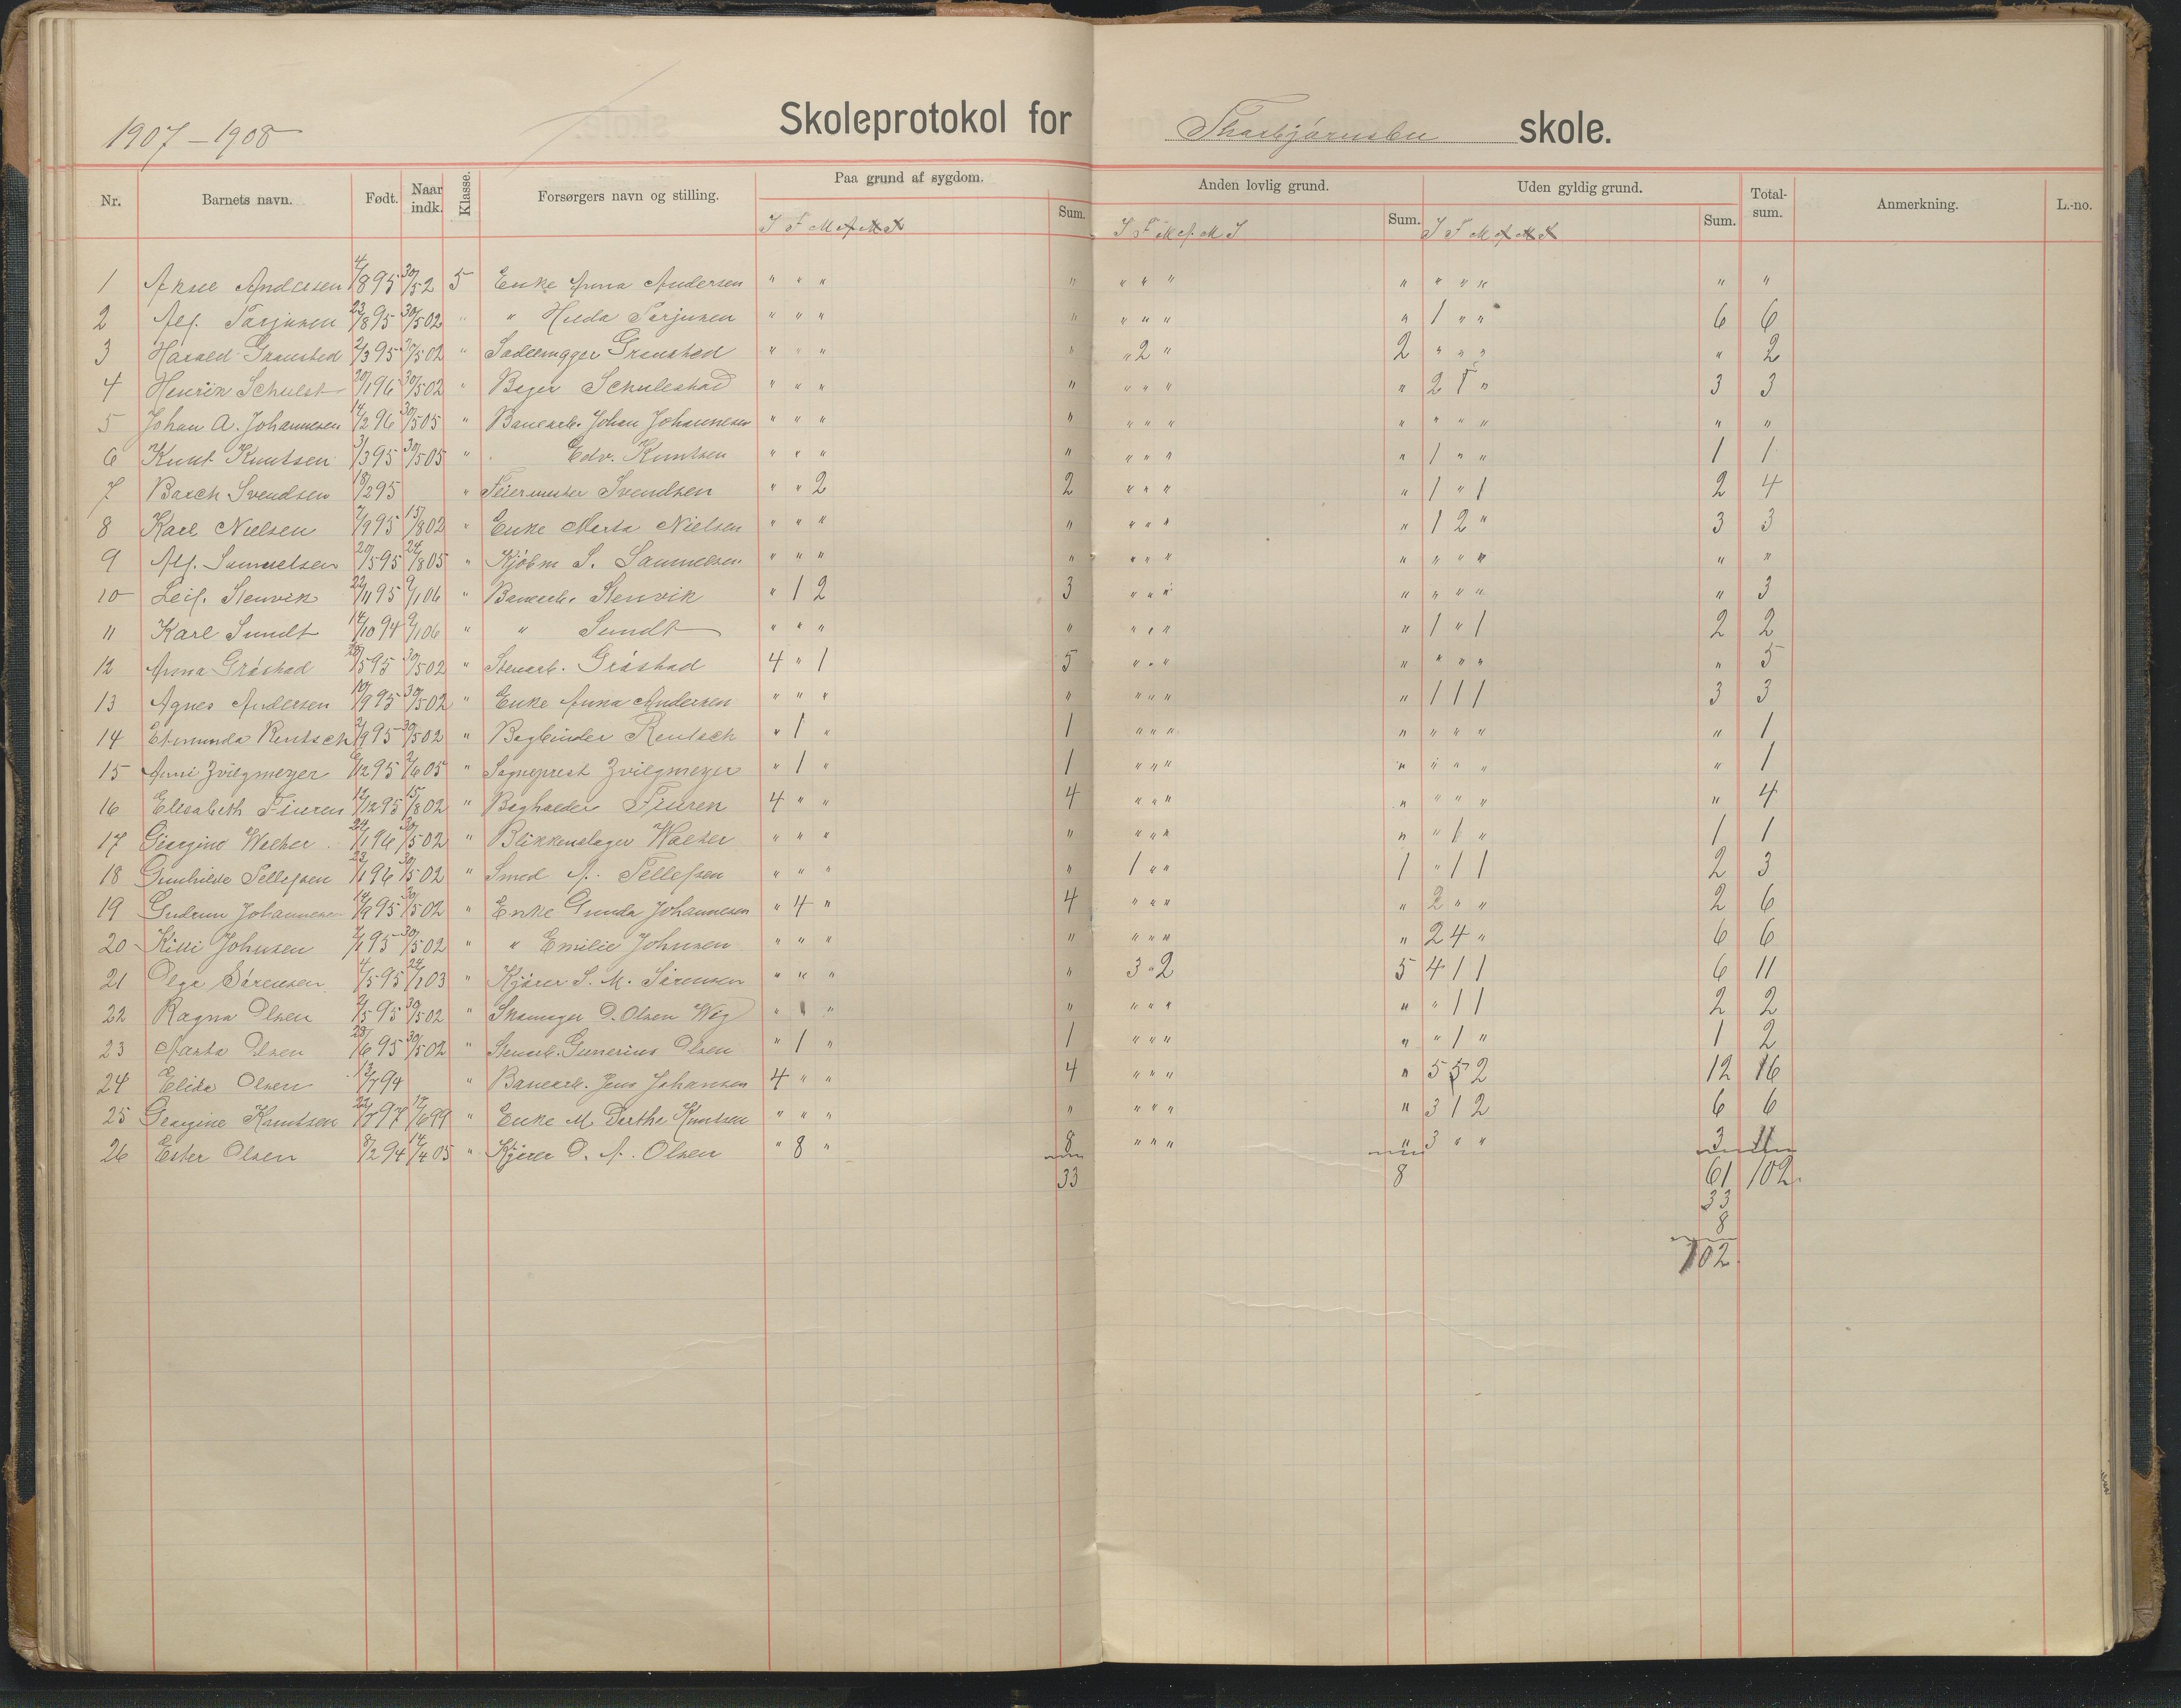 1907-1908
Skoleprotokol for Thorbjørnsbu skole.
Nr. Barnets navn. Født. Naar indk. Klasse. Forsørgers navn og stilling. Paa grund af sygdom. Sum. Anden lovlig grund. Sum. Uden gyldig grund. Sum. Total-sum. Anmerkning. L.-no.
1 Aksel Andersen 4/8 95 30/5 2 5 Enke Anna Andersen " " " " " " " " " " " " "
2 Alf. Terjusen 23/8 95 30/5 02 " " Hilda Terjusen " " " " " " " " 1 " " 6 6
3 Harald Grønsted 2/3 95 30/5 02 " Grønsted " " " " " 2 " 2 " " " " 2
4 Henrik Schulst 20/1 96 30/5 02 " Bager Schulestad " " " " " " " " 2 1 " 3 3
5 Johan A. Johannesen 14/2 96 30/5 05 " Banearb. Johan Johannesen " " " " " " " " " " " " "
6 Knut Knutsen 31/3 95 30/5 05 " " Edv. Knutsen " " " " " " " " 1 " " 1 1
7 Barch Svendsen 18/2 95 " Feiermester Svendsen " " 2 2 " " " " 1 " 1 2 4
8 Karl Nielsen 7/9 95 15/8 02 " Enke Marta Nielsen " " " " " " " " 1 2 " 3 3
9 Alf. Samuelsen 20/5 95 24/8 05 " Kjøbm S. Samuelsen " " " " " " " " " " " " "
10 Leif. Stenvik 22/11 95 9/1 06 " Banearb. Stenvik " 1 2 3 " " " " " " " " 3
11 Karl Sundt 14/10 94 9/1 06 " " Sundt " " " " " " " " 1 " 1 2 2
12 Anna Gråstad 28/5 95 30/5 02 " Stenarb. Gråstad 4 " 1 5 " " " " " " " " 5
13 Agnes Andersen 10/9 95 30/5 02 " Enke Anna Andersen " " " " " " " " 1 1 1 3 3
14 Edmunda Rentsch 2/9 95 30/5 02 " Bogbinder Rentsch " 1 " 1 " " " " " " " " 1
15 Anni Zwilgmeyer 6/12 95 2/6 05 " Sogneprest Zwilgmeyer " 1 " 1 " " " " " " " " 1
16 Elisabeth Fiuren 12/12 95 15/8 02 " Bogholder Fiuren 4 " " 4 " " " " " " " " 4
17 Georgine Welher 24/1 96 30/5 02 " Blikkenslager Walher " " " " " " " " " 1 " 1 1
18 Gunhilde Tellefsen 23/1 96 30/5 02 " Smed A. Tellefsen " " " " 1 " " 1 " 1 1 2 3
19 Gudrun Johannesen 14/9 95 30/5 02 " Enke Gunda Johannesen " 4 " 4 " " " " 2 " " 2 6
20 Kiki Johnsen 7/1 95 30/5 02 " " Emilie Johnsen " " " " " " " " 2 4 " 6 6
21 Olga Sørensen 4/5 95 24/1 03 " Kjører S. M. Sørensen " " " " 3 " 2 5 4 1 1 6 11
22 Ragna Olsen 2/5 95 30/5 02 " D. Olsen Wig " " " " " " " " 1 1 2 2
23 Marta Olsen 28/6 95 30/5 02 " Stenarb. Gunerius Olsen " 1 " 1 " " " " " 1 " 1 2
24 Elida Olsen 13/7 94 " Banearb. Jens Johansen 4 " " 4 " " " " 5 5 2 12 16
25 Georgine Knutsen 22/7 97 12/6 99 " Enke M. Dorthe Knutsen " " " " " " " " 3 1 2 6 6
26 Ester Olsen 8/2 94 14/4 05 " Kjører O. A. Olsen " 8 " 8 " " " " 3 " " 3 11
33 8 61 102.
33
8
102.